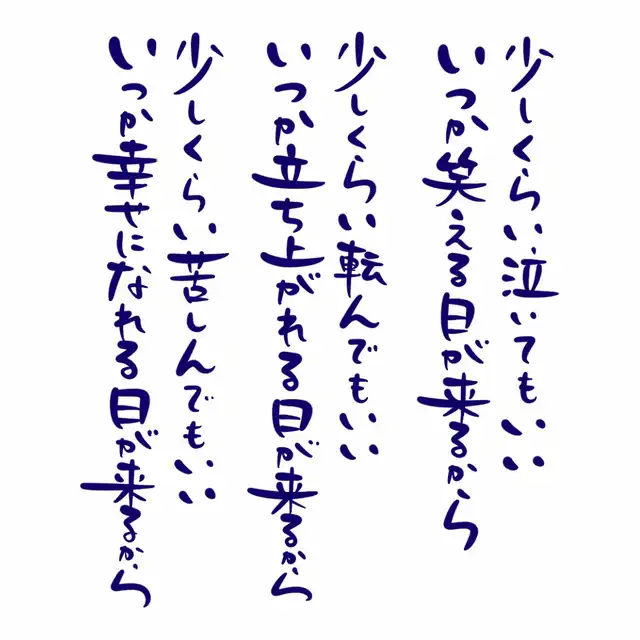 少しくらい泣いてもいい
いつか笑える日が来るから
少しくらい転んでもいい
いつか立ち上がれる日が来るから
少しくらい苦しんでもいい
いつか幸せになれる日が来るから